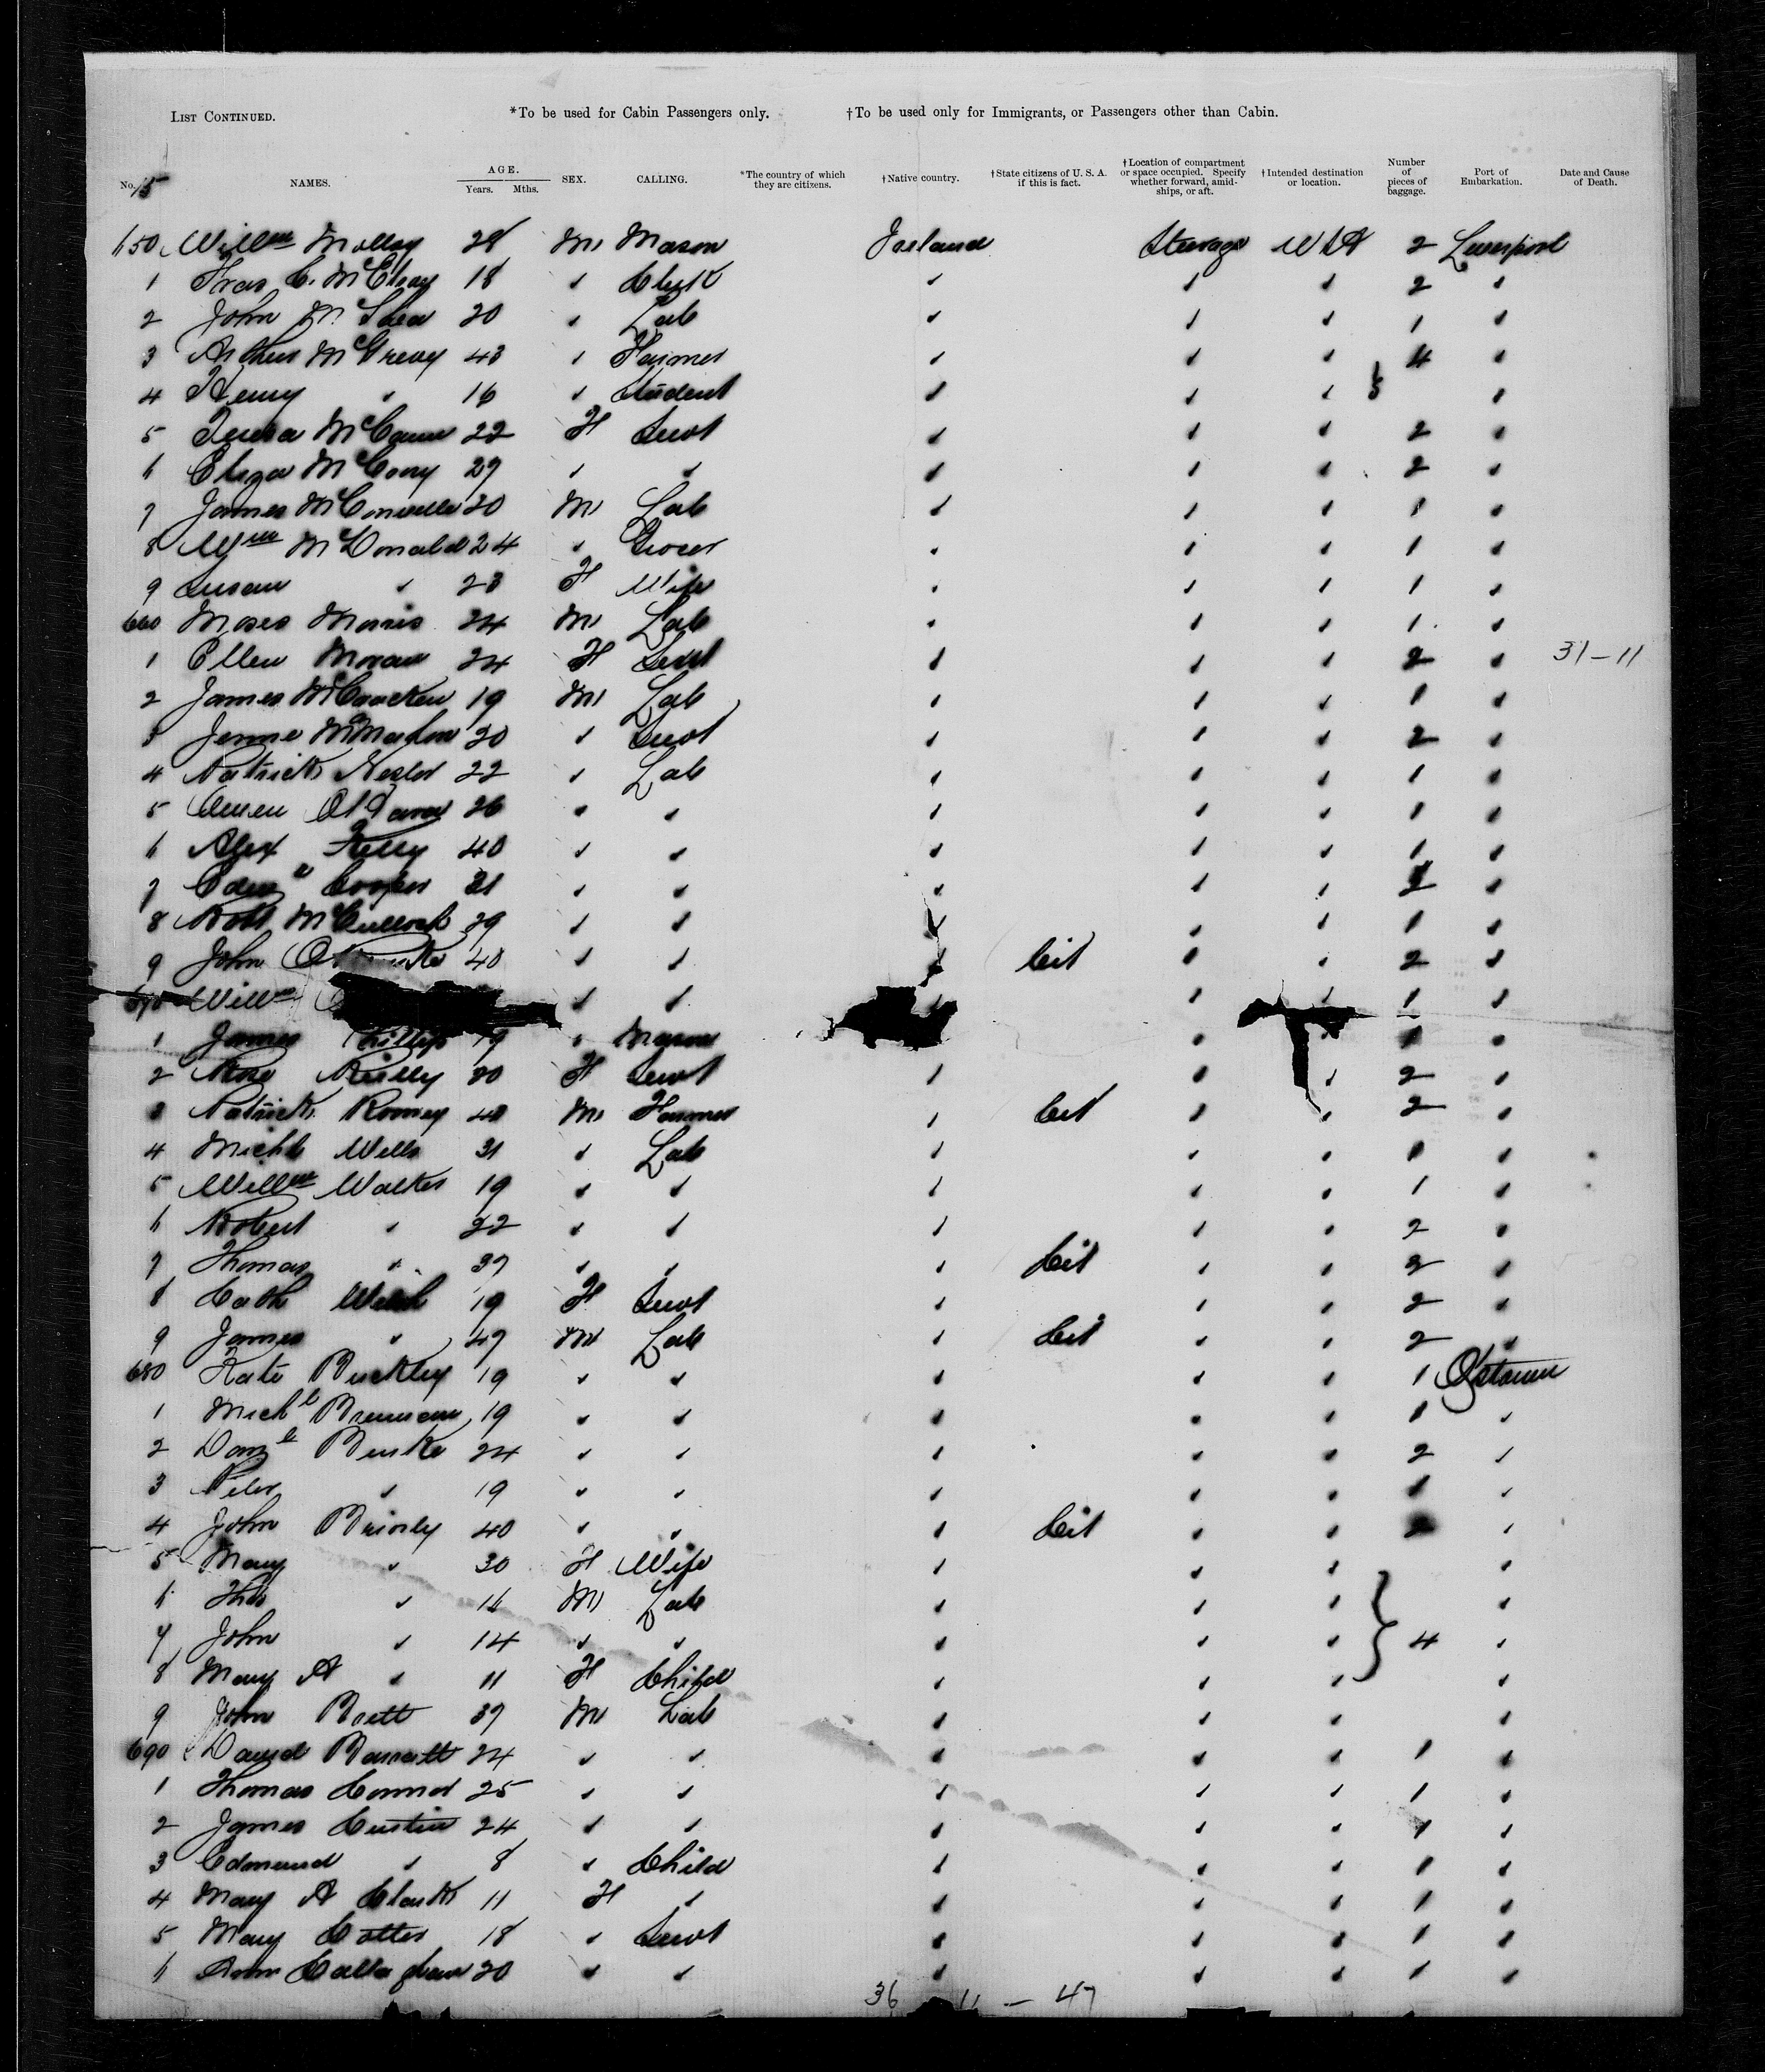 LIST CONTINUED. *To be used for Cabin Passengers only. †To be used only for Immigrants, or Passengers other than Cabin.
No. 15 NAMES. AGE. Years. Mths. SEX. CALLING. *The country of which they are citizens. †Native country. †State citizens of U. S. A. if this is fact. †Location of compartment or space occupied. Specify whether forward, amid-ships, or aft. †Intended destination or location. Number of pieces of baggage. Port of Embarkation. Date and Cause of Death.
650 Willm Molloy 28 M Mason Ireland Steerage USA 2 Liverpool
1 Fras C. McElroy 18 " Clerk " " " 2 "
2 John McShea 20 " Lab " " " 1 "
3 Arthur McGrevy 43 " Farmer " " " 4 "
4 Henry " 16 " Student " " " "
5 Teresa McCann 22 F Servt " " " 2 "
6 Eliza McCorry 27 " " " " " 2 "
7 James McConville 20 M Lab " " " 1 "
8 Wm McDonald 24 " Grocer " " " 1 "
9 Susan " 23 F Wife " " " 1 "
660 Moses Morris 24 M Lab " " " 1 "
1 Ellen Moran 24 F Servt " " " 2 " 31-11
2 James McCracken 19 M Lab " " " 1 "
3 Jennie McMahon 20 " Servt " " " 2 "
4 Patrick 22 " Lab " " " 1 "
5 Owen O'Hara 26 " " " " " 1 "
6 Alex Kelly 40 " " " " " 1 "
7 Edwd Cooper 21 " " " " " 2 "
8 Robt McCullock 29 " " " " " 1 "
9 John 40 " " " Cit " " 2 "
670 Willm " " " " " 1 "
1 James Phillips 19 " Mason " " 1 "
2 Rose Reilly 20 F Servt " " " 2 "
3 Patrick Rooney 40 M Farmer " Cit " " 2 "
4 Michl Wells 31 " Lab " " " 1 "
5 Willm Walker 19 " " " " " 1 "
6 Robert " 22 " " " " " 2 "
7 Thomas " 37 " " " Cit " " 2 "
8 Cath Welsh 19 F Servt " " " 2 "
9 James " 47 M Lab " Cit " " 2 "
680 Kate Buckley 19 " " " " " 1 Q'stown
1 Michl Brennan 19 " " " " " 1 "
2 Danl Burke 24 " " " " " 2 "
3 Peter " 19 " " " " " 1 "
4 John Brierly 40 " " " Cit " " 2 "
5 Mary " 30 F Wife " " " "
6 Thos " 16 M Lab " " " "
7 John " 14 " " " " " 4 "
8 Mary A " 11 F Child " " " "
9 John Brett 37 M Lab " " " "
690 David Barrett 24 " " " " " 1 "
1 Thomas 25 " " " " " 1 "
2 James Custin 24 " " " " " 1 "
3 Edmund " 8 " Child " " " 1 "
4 Mary A Clark 11 F " " " " 1 "
5 Mary Cotter 18 " Servt " " " 1 "
6 Ann Callaghan 20 " " " " " 1 "
36 11 — 47